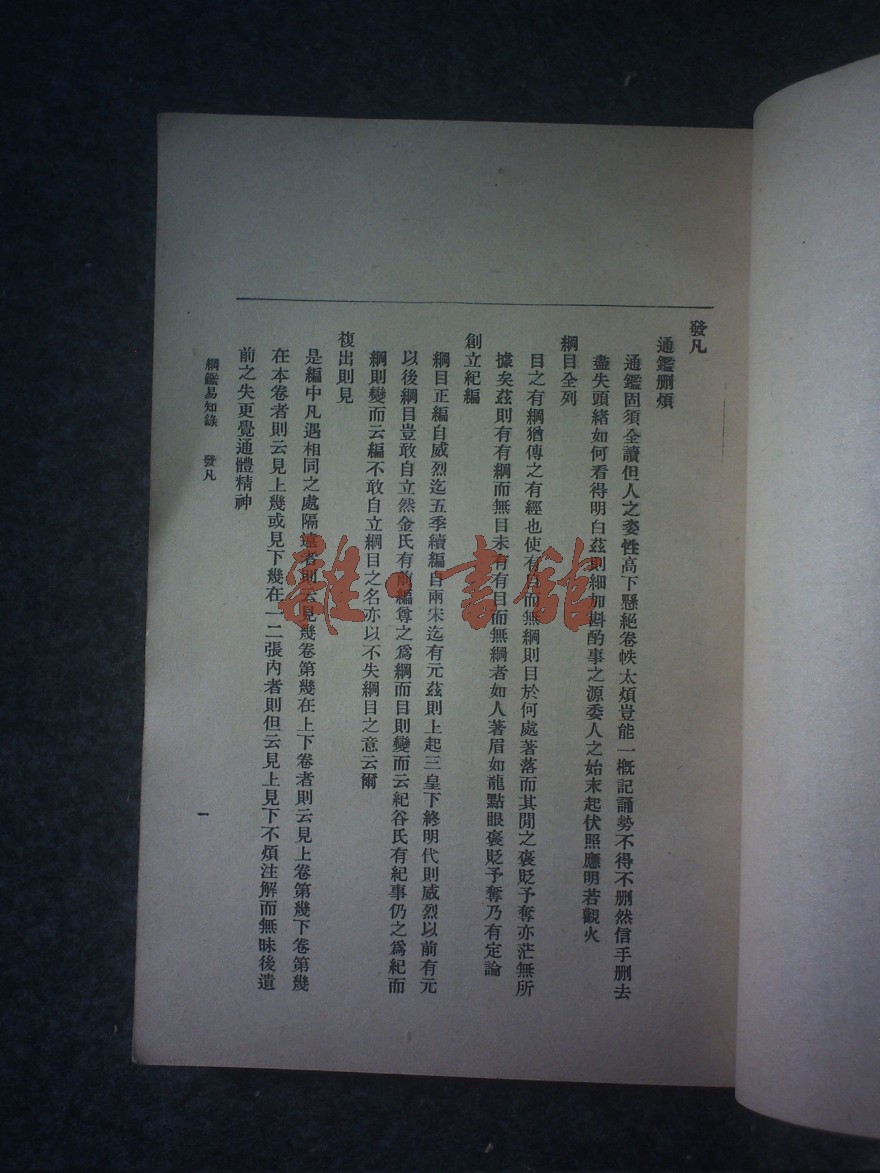 發凡
通鑑删煩
通鑑固須全讀但人之姿性高下懸絕卷帙太煩豈能一概記誦勢不得不删然信手删去
盡失頭緒如何看得明白茲則細加斟酌事之源委人之始末起伏照應明若觀火
綱目全列
目之有綱猶傳之有經也使有目而無綱則目於何處著落而其閒之褒貶予奪亦茫無所
據矣茲則有有綱而無目未有有目而無綱者如人著眉如龍點眼褒貶予奪乃有定論
創立紀編
綱目正編自威烈迄五季續編自兩宋迄有元茲則上起三皇下終明代則威烈以前有元
以後綱目豈敢自立然金氏有前編尊之爲綱而目則變而云紀谷氏有紀事仍之爲紀而
綱則變而云編不敢自立綱目之名亦以不失綱目之意云爾
複出則見
是編中凡遇相同之處隔遠者則云見幾卷第幾在上下卷者則云見上卷第幾下卷第幾
在本卷者則云見上幾或見下幾在一二張內者則但云見上見下不煩注解而無昧後遺
前之失更覺通體精神
綱鑑易知錄 發凡
一
雜·書館